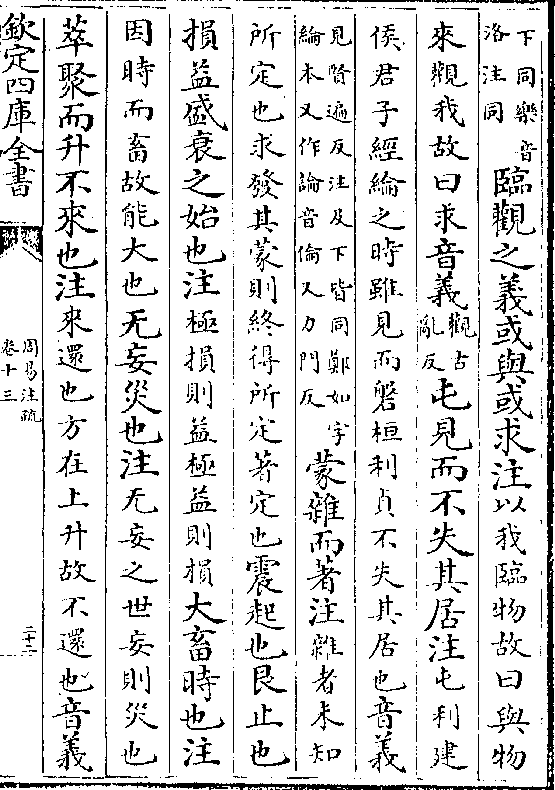 下同樂音
洛注同
臨觀之義或與或求注以我臨物故曰與物
來觀我故曰求音義
觀古
亂反
屯見而不失其居注屯利建
侯君子經綸之時雖見而磐桓利貞不失其居也音義
見賢遍反注及下皆同鄭如字
綸本又作論音倫又力門反
蒙雜而著注雜者未知
所定也求發其蒙則終得所定著定也震起也艮止也
損益盛衰之始也注極損則益極益則損大畜時也注
因時而畜故能大也无妄災也注无妄之世妄則災也
萃聚而升不來也注來還也方在上升故不還也音義
欽定四庫全書
周易注疏
卷十三
二十二